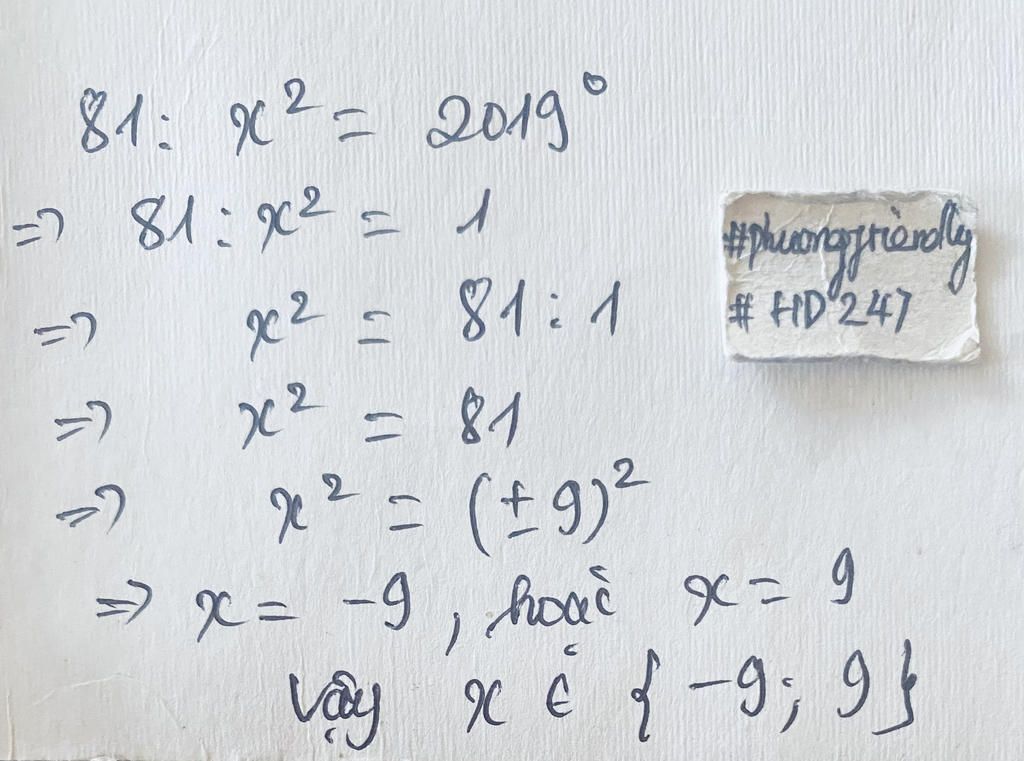 81: x² = 2019⁰
=> 81 : x² = 1
=> x² = 81 : 1
=> x² = 81
=> x² = (±9)²
=> x = -9, hoặc x = 9
Vậy x ∈ {-9; 9}
#phuongfriendly
# HD247